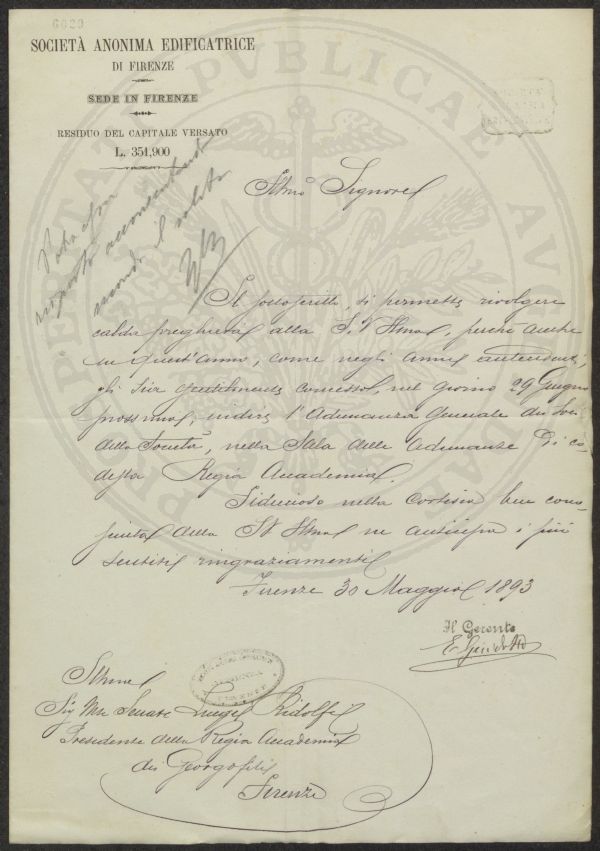 6620
SOCIETÀ ANONIMA EDIFICATRICE
DI FIRENZE
SEDE IN FIRENZE
RESIDUO DEL CAPITALE VERSATO
L. 351,900
PVBLICAE
risposta acconsentendo
secondo il solito
Illmo Signore
Il sottoscritto, si permette rivolgere
calda preghiera alla S. V. Illma, perchè anche
in quest'anno, come negli anni antecedenti,
gli sia gentilmente concesso, nel giorno 29 Giugno
prossimo, indire l'Adunanza Generale dei Soci
della Società, nella Sala delle Adunanze di co-
desta Regia Accademia.
Fiducioso nella cortesia ben cono-
sciuta della S. V. Illma ne anticipa i più
sentiti ringraziamenti
Firenze 30 Maggio 1893
Il Gerente
Illmo
Sig Mse Senatore Luigi Ridolfi
Presidente della Regia Accademia
dei Georgofili
Firenze